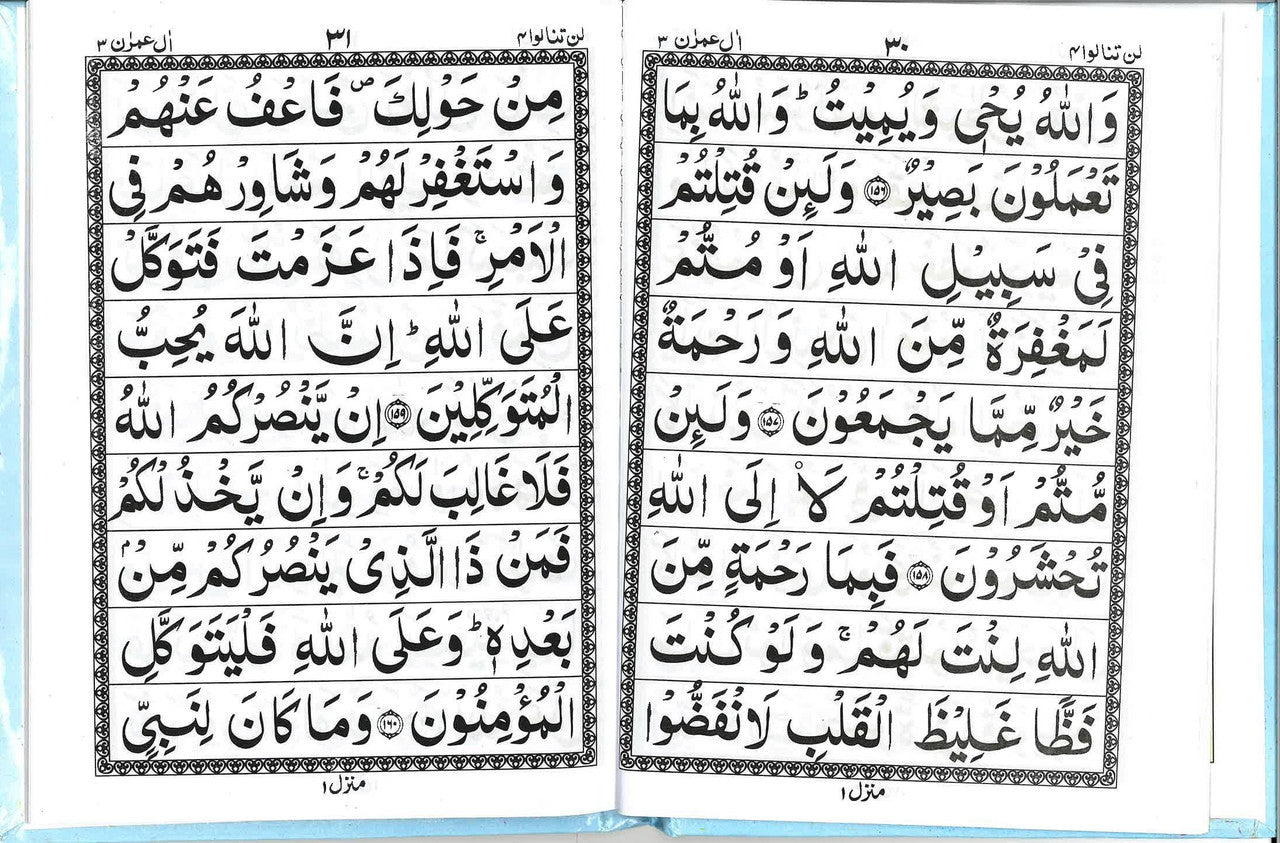 لن تنالوا ٤ ٣٠ اٰل عمرٰن ٣
وَاللّٰهُ يُحْيٖ وَيُمِيْتُ ؕ وَاللّٰهُ بِمَا
تَعْمَلُوْنَ بَصِيْرٌ ﴿۱۵۶﴾ وَلَىِٕنْ قُتِلْتُمْ
فِيْ سَبِيْلِ اللّٰهِ اَوْ مُتُّمْ
لَمَغْفِرَةٌ مِّنَ اللّٰهِ وَرَحْمَةٌ
خَيْرٌ مِّمَّا يَجْمَعُوْنَ ﴿۱۵۷﴾ وَلَىِٕنْ
مُّتُّمْ اَوْ قُتِلْتُمْ لَاۡ اِلَى اللّٰهِ
تُحْشَرُوْنَ ﴿۱۵۸﴾ فَبِمَا رَحْمَةٍ مِّنَ
اللّٰهِ لِنْتَ لَهُمْ ۚ وَلَوْ كُنْتَ
فَظًّا غَلِيْظَ الْقَلْبِ لَانْفَضُّوْا
منزل ١
لن تنالوا ٤ ٣١ اٰل عمرٰن ٣
مِنْ حَوْلِكَ ۪ فَاعْفُ عَنْهُمْ
وَاسْتَغْفِرْ لَهُمْ وَشَاوِرْهُمْ فِي
الْاَمْرِ ۚ فَاِذَا عَزَمْتَ فَتَوَكَّلْ
عَلَى اللّٰهِ ؕ اِنَّ اللّٰهَ يُحِبُّ
الْمُتَوَكِّلِيْنَ ﴿۱۵۹﴾ اِنْ يَّنْصُرْكُمُ اللّٰهُ
فَلَا غَالِبَ لَكُمْ ۚ وَاِنْ يَّخْذُلْكُمْ
فَمَنْ ذَا الَّذِيْ يَنْصُرُكُمْ مِّنْۢ
بَعْدِهٖ ؕ وَعَلَى اللّٰهِ فَلْيَتَوَكَّلِ
الْمُؤْمِنُوْنَ ﴿۱۶۰﴾ وَمَا كَانَ لِنَبِيٍّ
منزل ١